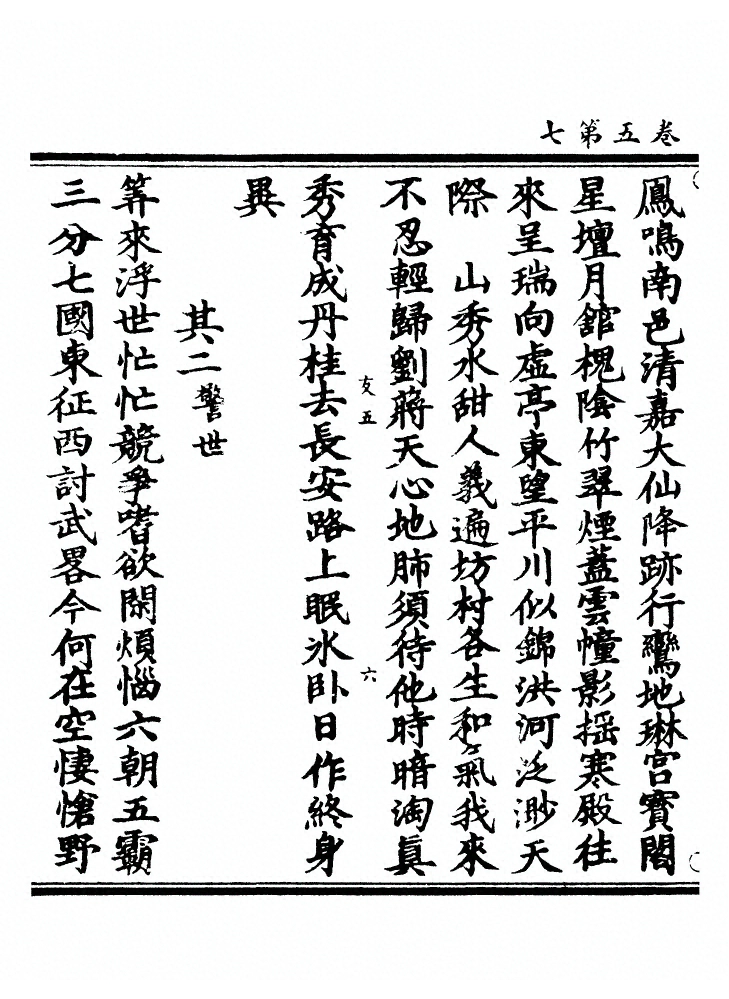 卷五第七
鳳鳴南邑清嘉大仙降跡行鸞地琳宮寳閣
星壇月舘槐隂竹翠煙蓋雲幢影揺寒殿往
來呈瑞向虛亭東望平川似錦洪河泛渺天
際　山秀水甜人義遍坊村各生和氣我來
不忍輕歸劉蔣天心地肺須待他時暗淘眞
亥五　六
秀育成丹桂去長安路上眠氷卧日作終身
異
其二警世
筭來浮世忙忙競爭嗜欲閑煩惱六朝五霸
三分七國東征西討武畧今何在空悽愴野